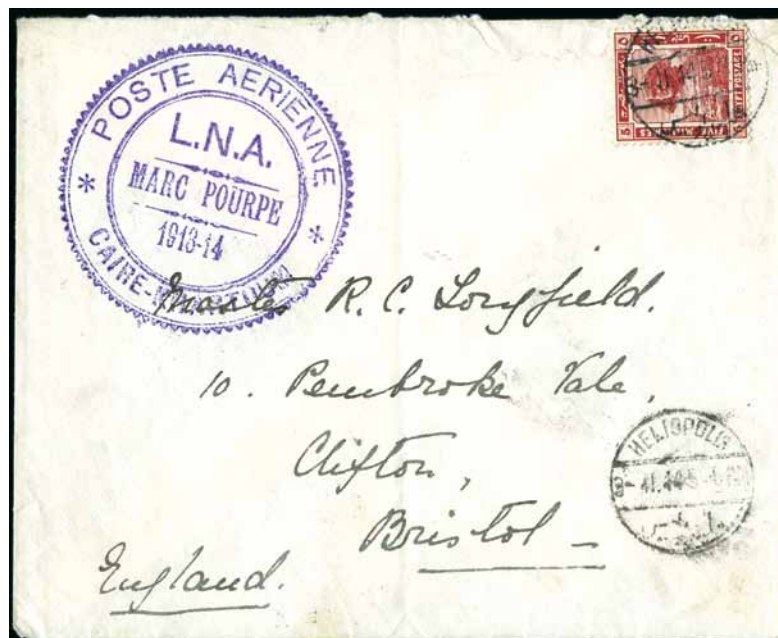 * POSTE AERIENNE *
L.N.A.
MARC POURPE
1913-14
CAIRE-
Master R. C. Longfield.
10. Pembroke Vale,
Clifton,
Bristol —
England.
HELIOPOLIS